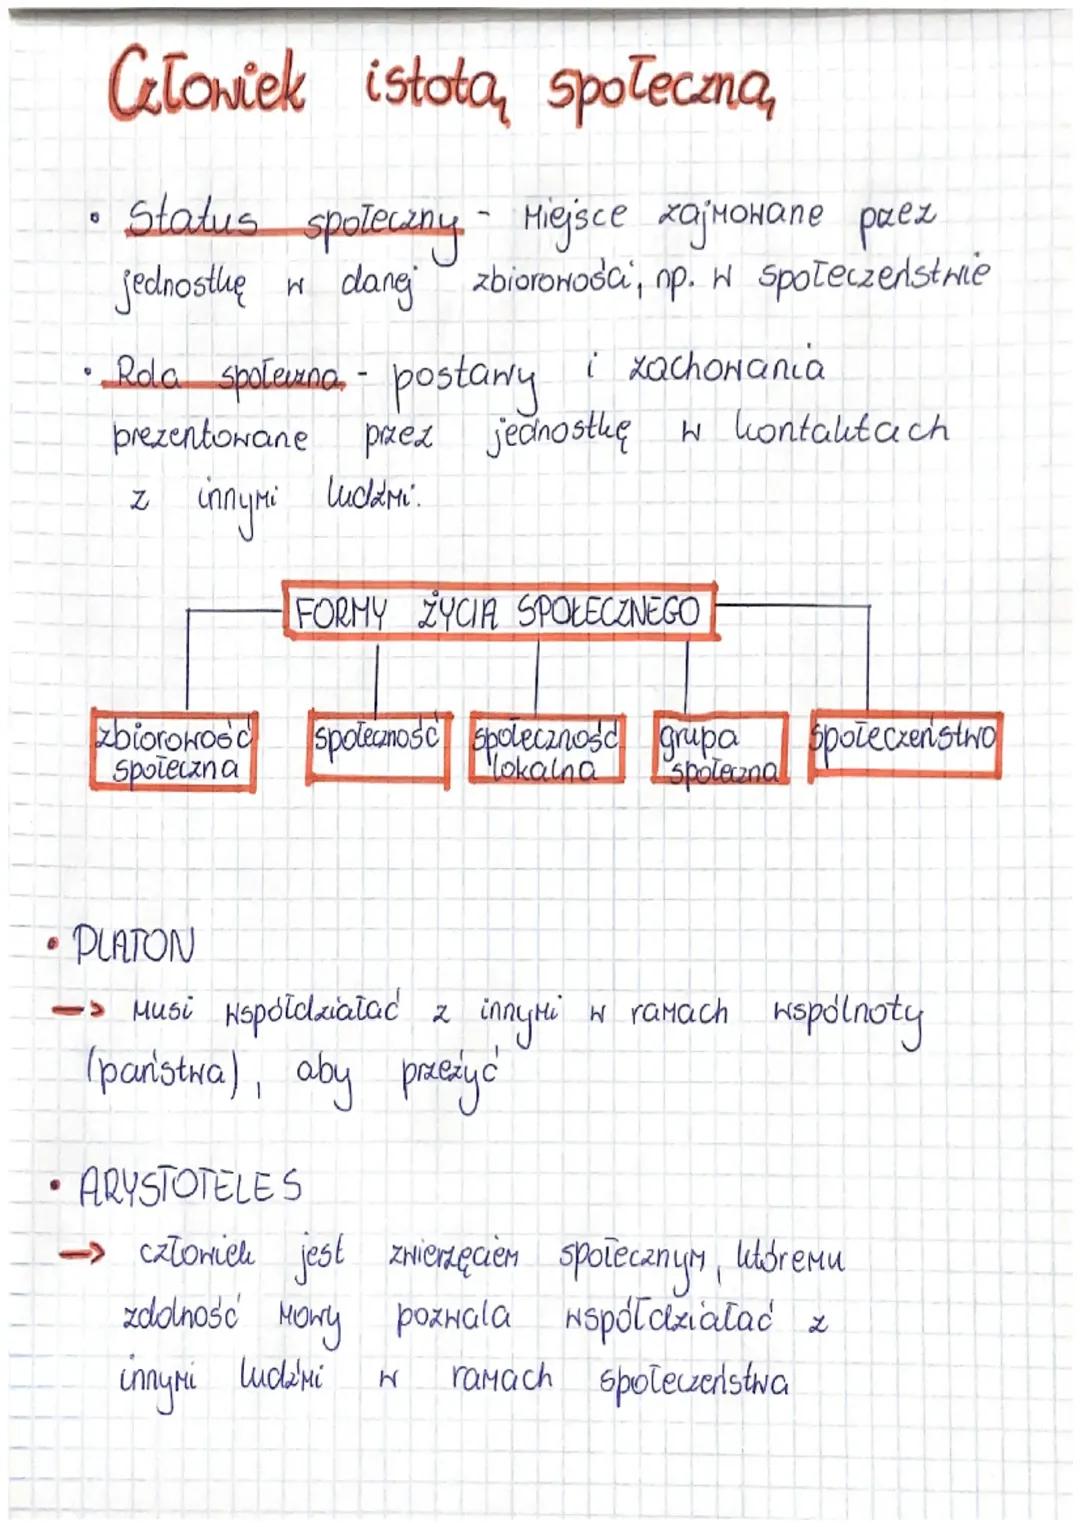 Człowiek istotą społeczną
• Status społeczny - miejsce zajmowane przez
jednostkę w danej zbiorowości, np. w społeczeństwie
• Rola społeczna - postawy i zachowania
prezentowane przez jednostkę w kontaktach
z innymi ludźmi.
FORMY ŻYCIA SPOŁECZNEGO
zbiorowość społeczna
społeczność
społeczność lokalna
grupa społeczna
społeczeństwo
• PLATON
-> musi współdziałać z innymi w ramach wspólnoty
(państwa), aby przeżyć
• ARYSTOTELES
-> człowiek jest zwierzęciem społecznym, któremu
zdolność mowy pozwala współdziałać z
innymi ludźmi w ramach społeczeństwa